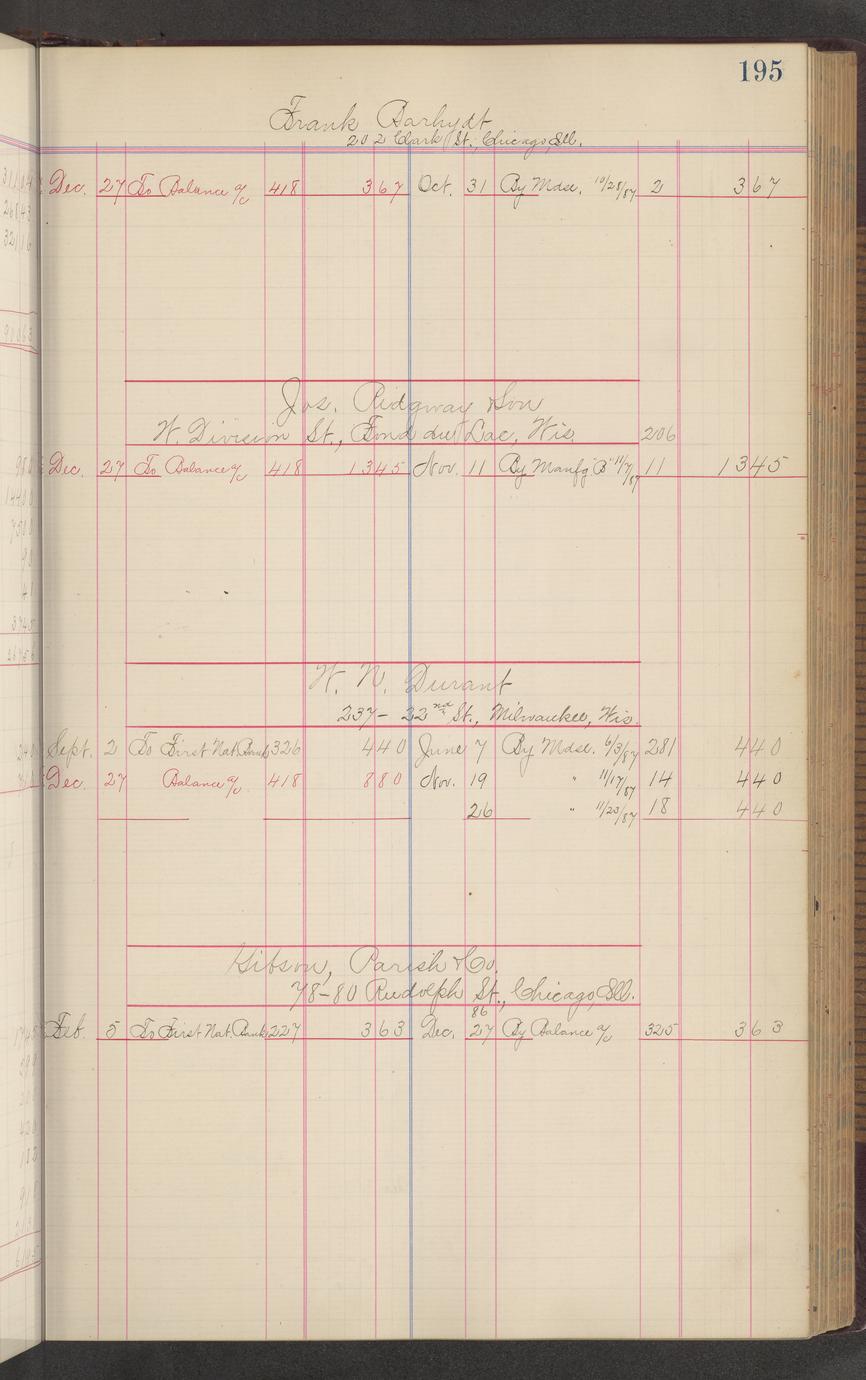 195
Frank Barhydt
202 Clark St., Chicago, Ill.
Dec. 27 To Balance a/c 418 367 Oct. 31 By Mdse. 10/28/87 2 367
Jos. Ridgway & Son
W. Division St., Fond du Lac, Wis. 206
Dec. 27 To Balance a/c 418 1345 Nov. 11 By Manfg "B" 11/7/87 11 1345
W. N. Durant
237 - 22nd St., Milwaukee, Wis.
Sept. 2 To First Nat. Bank 326 440 June 7 By Mdse. 6/3/87 281 440
Dec. 27 Balance a/c 418 880 Nov. 19 " 11/17/87 14 440
26 " 11/23/87 18 440
Gibson, Parish & Co.
78-80 Rudolph St., Chicago, Ill.
86
Feb. 5 To First Nat. Bank 227 363 Dec. 27 By Balance a/c 325 363